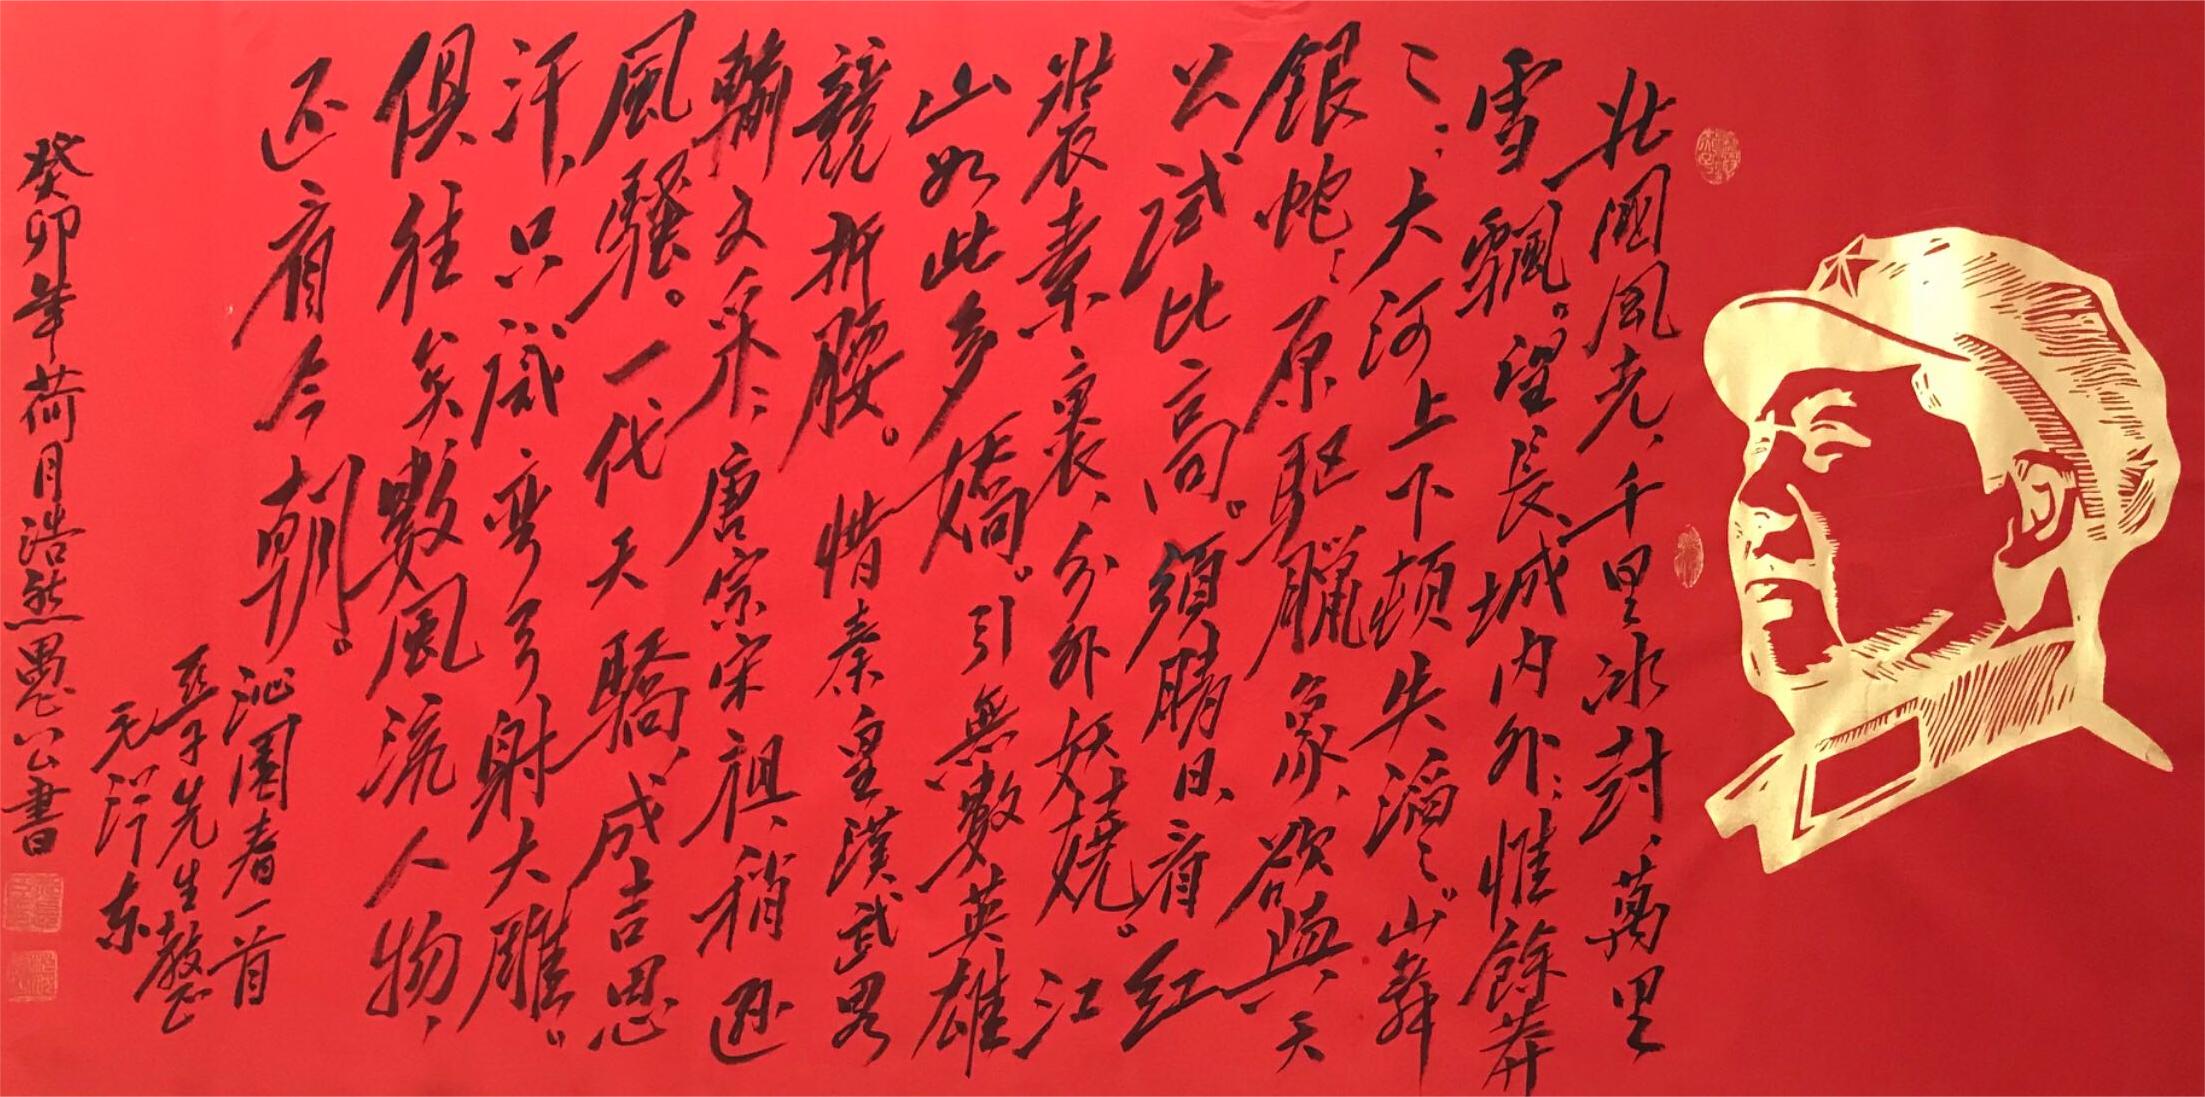 北國風光、千里冰封、萬里
雪飄。望長城内外、惟餘莽
〻、大河上下頓失滔〻。山舞
銀蛇、原驱臘象、欲與天
公試比高。須晴日、看紅
裝素裹、分外妖嬈。江
山如此多嬌。引無數英雄
競折腰。惜秦皇漢武畧
輸文采、唐宗宋祖、稍遜
風騷。一代天驕、成吉思
汗、只識弯弓射大雕。
俱往矣數風流人物、
还看今朝。
沁園春一首
亞子先生教正
毛泽东
癸卯年荷月浩然愚公書